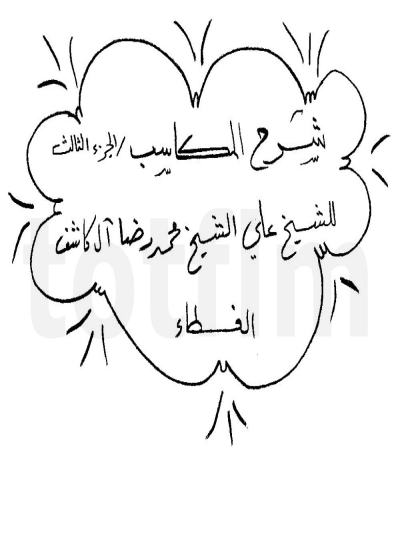 شرح المكاسب / الجزء الثالث
للشيخ علي الشيخ محمد رضا آل كاشف
الغطاء